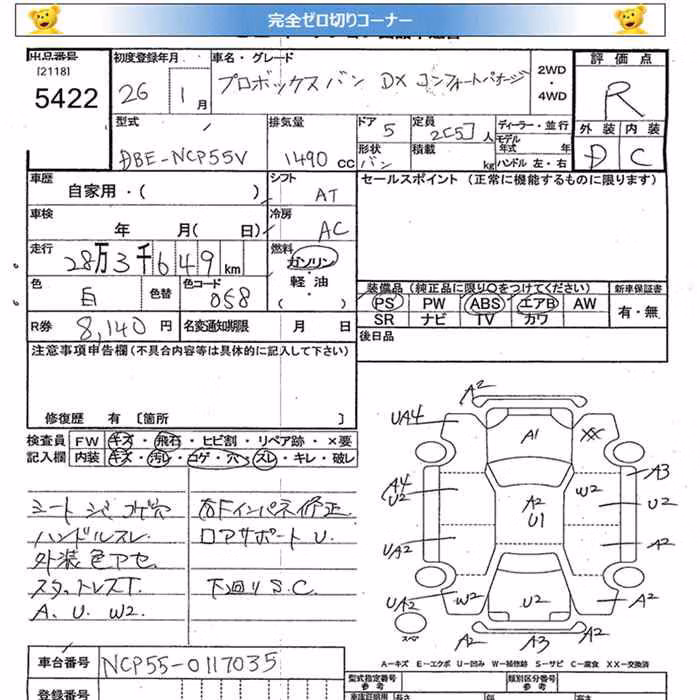 完全ゼロ切りコーナー
出品番号
[2118]
5422
初度登録年月
26 1月
車名・グレード
プロボックスバン DX コンフォートパッケージ
2WD
・
4WD
評価点
R
型式
DBE-NCP55V
排気量
1490 cc
ドア 5
形状 バン
定員 2[5]人
積載 kg
ディーラー・並行
モデル年式 年
ハンドル 左・右
外装 内装
D C
車歴
自家用・( )
シフト
AT
セールスポイント (正常に機能するものに限ります)
車検
年 月( 日)
冷房
AC
走行
28万3千649km
燃料
ガソリン
・
軽油
・
( )
色
白
色替
色コード
058
装備品(純正品に限り○をつけてください)
新車保証書
PS PW ABS エアB AW
SR ナビ TV カワ
有・無
R券 8,140円
名変通知期限 月 日
後日品
注意事項申告欄(不具合内容等は具体的に記入して下さい)
修復歴 有 [箇所 ]
検査員 FW キズ・飛石・ヒビ割・リペア跡・×要
記入欄 内装 キズ・汚レ・コゲ・穴・スレ・キレ・破レ
シート シミ コゲ穴
ハンドルスレ
外装色アセ
スタットレスT.
A. U. W2
右Fインパネ修正
ロアサポート U.
下回りS.C.
A2
UA4
A1
XX
A4
U2
A2
U1
W2
A3
U2
UA2
A2
UA2
W2
U2
A2
スペア
A2
A3
A2
A-キズ E-エクボ U-凹み W-補修跡 S-サビ C-腐食 XX-交換済
車台番号
NCP55-0117035
型式指定番号
参考
類別区分番号
参考
登録番号
車庫証明用
参考
長さ
幅
高さ